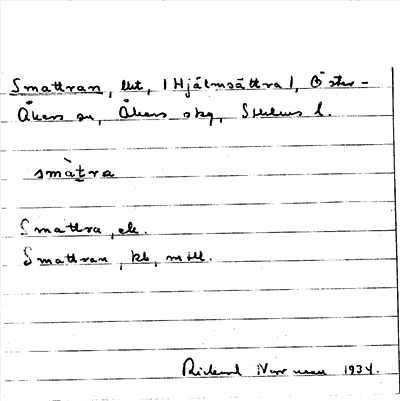 Smattran, litt, | Hjälmsättra |, Öster-
Åkers sn, Åkers skg, Sthlms l.
smàtra
Smattra, ek.
Smattran, kb, mtll.
Rickard 1934.